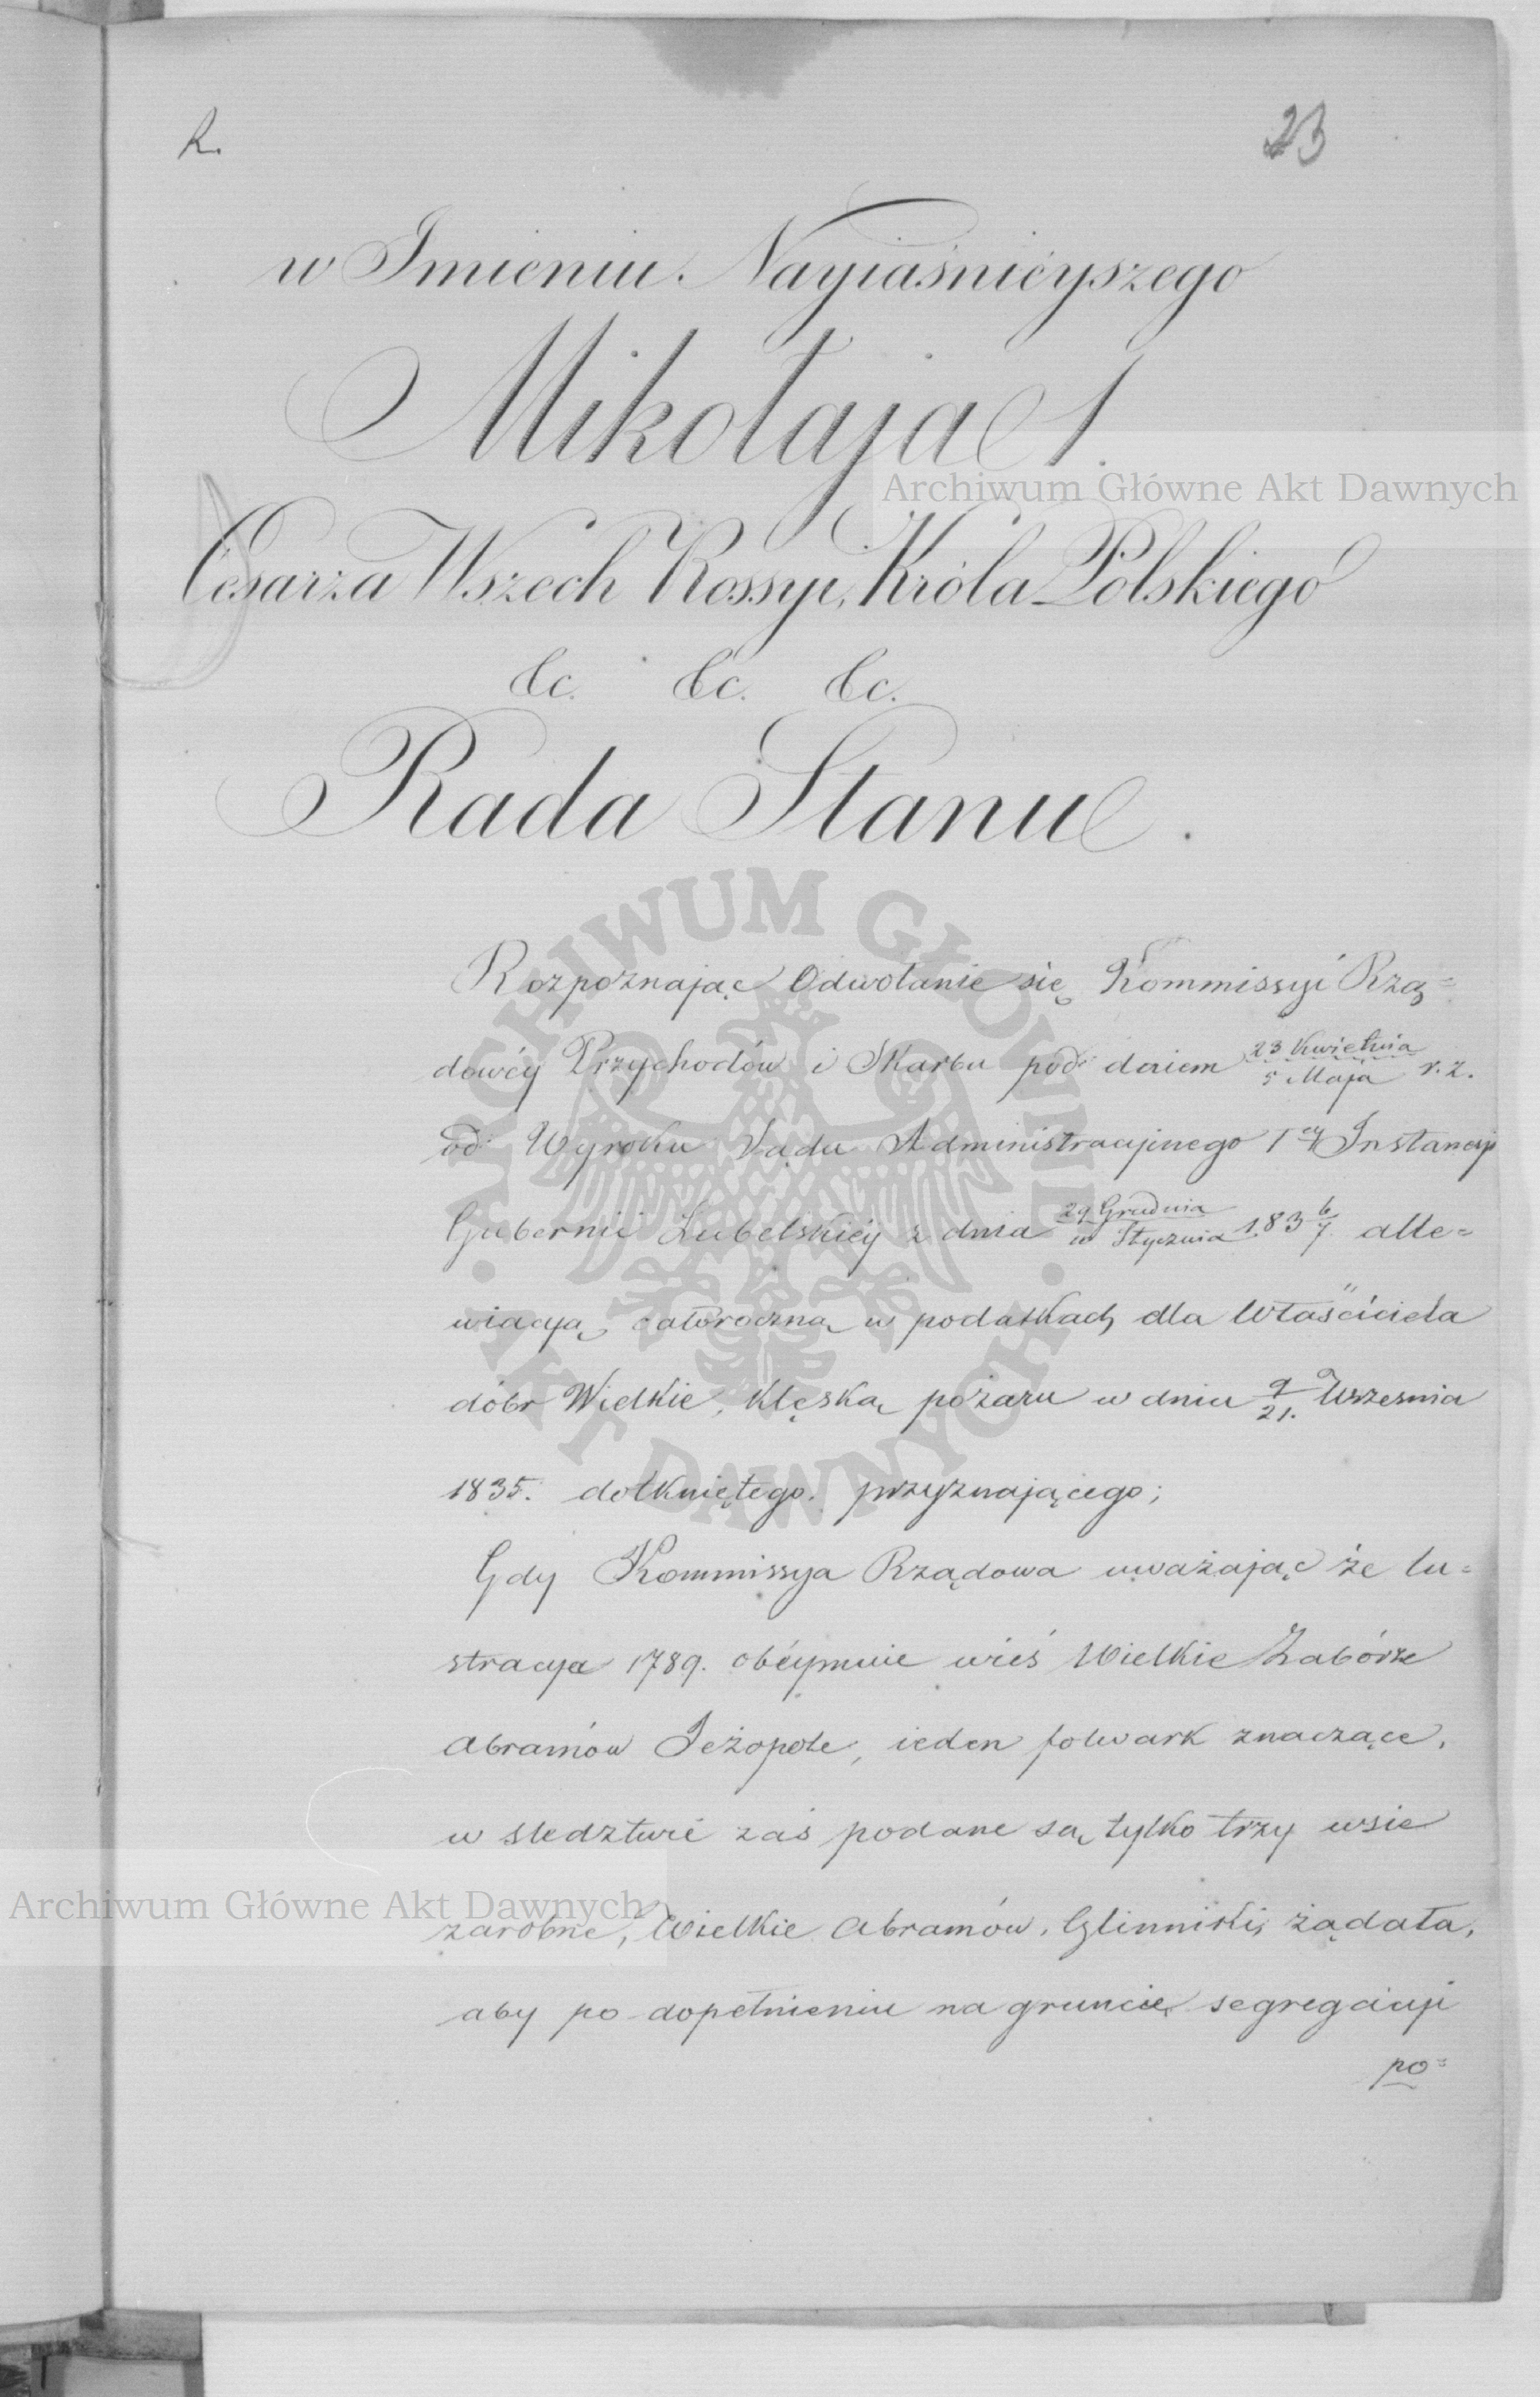 R.
23
w Imieniu Nayiaśnieyszego
Mikołaja I.
Cesarza Wszech Rossyi, Króla Polskiego
&c. &c. &c.
Rada Stanu.
Rozpoznając Odwołanie się Kommissyi Rzą=
dowéy Przychodów i Skarbu pod dniem 23 Kwietnia / 5 Maja r. z.
od Wyroku Sądu Administracyjnego 1éy Instancyi
Gubernii Lubelskiéy z dnia 29 Grudnia / 10 Stycznia 1836/7. alle=
wiacyą całoroczną w podatkach dla Właściciela
dóbr Wielkie, klęską pożaru w dniu 9/21. Września
1835. dotkniętego. przyznającego;
Gdy Kommissya Rządowa uważając że lu=
stracya 1789. obéymuie wieś Wielkie Zabórze
Abramów Jeżopole, ieden folwark znaczące,
w śledztwie zaś podane są tylko trzy wsie
zarobne, Wielkie Abramów, Glinniski, żądała,
aby po dopełnieniu na gruncie segregacyi
po=
Archiwum Główne Akt Dawnych
ARCHIWUM GŁÓWNE AKT DAWNYCH
Archiwum Główne Akt Dawnych